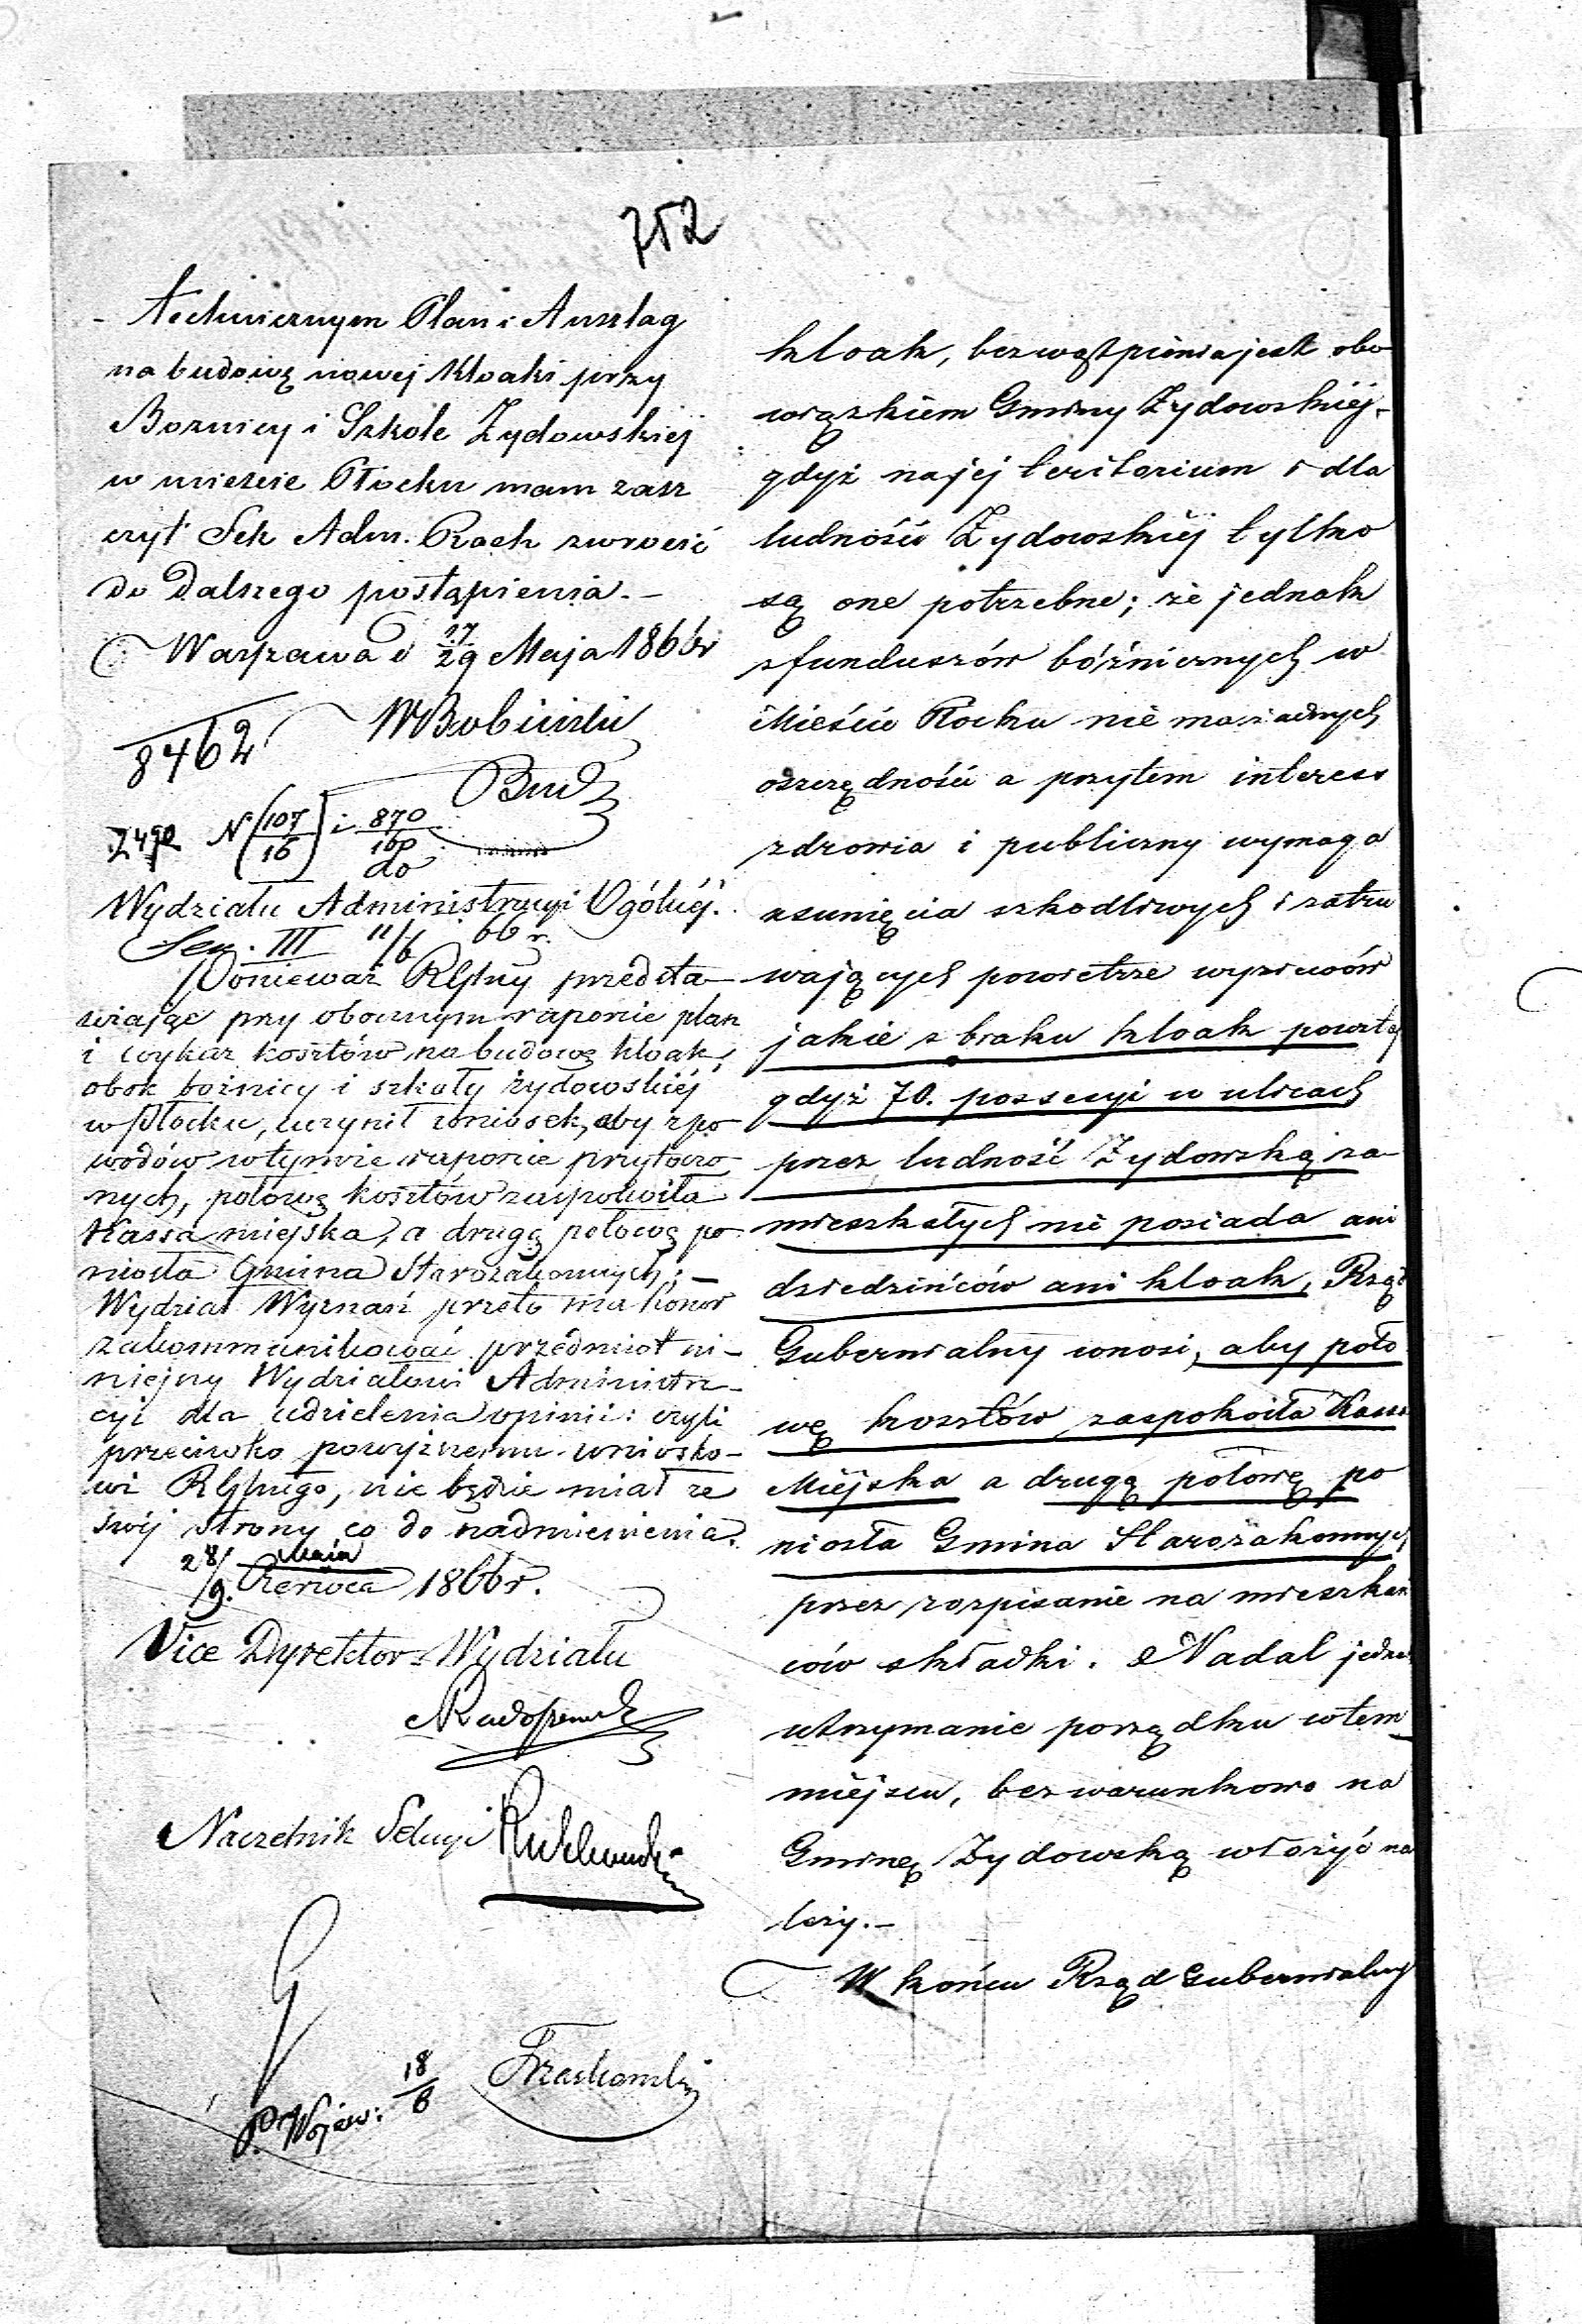 752
technicznym Plan i Anszlag
na budowę nowej Kloaki przy
Boznicy i Szkole Żydowskiej
w mieście Płocku mam zasz
czyt Sek Adm. Rach zwrócić
do Dalszego postąpienia. –
Warszawa d 17/29 Maja 1866 r
8462
Bud
2490 N (107/16) i 870/160
do
Wydziału Administracyi Ogólnéj.
Sek. III 11/6 66 r.
Ponieważ RGlny przedsta
wiając przy obocznym raporcie plan
i wykaz kosztów na budowę kloak,
obok bożnicy i szkoły żydowskiéj
w Płocku, uczynił wniosek, aby z po
wodów w tymże raporcie przytoczo
nych, połowę kosztów zaspokoiła
Kassa miejska, a drugą połowę po
niosła Gmina Starozakonnych; –
Wydział Wyznań przeto ma honor
zakommunikować przedmiot ni–
niejszy Wydziałowi Administra–
cyi dla udzielenia opinii: czyli
przeciwko powyższemu wniosko–
wi RGlnego, nie będzie miał ze
swéj strony co do nadmienienia.
28/9. Maja Czerwca 1866 r.
Vice Dyrektor Wydziału
Naczelnik Sekcyi
P. Wojew: 18/6
kloak, bez wątpienia jest obo
wiązkiem Gminy Żydowskiéj,
gdyż na jéj teritorium i dla
ludności Żydowskiéj tylko
są one potrzebne; że jednak
z funduszów bóźnicznych w
Mieście Płocku nie ma żadnych
oszczędności a przytem interess
zdrowia i publiczny wymaga
usunięcia szkodliwych i zatru
wających powietrze wyziewów
jakie z braku kloak powstają
gdyż 70. possesyi w ulicach
przez ludność Żydowską za–
mieszkałych nie posiada ani
dziedzińców ani kloak, Rząd
Gubernialny wnosi, aby poło
wę kosztów zaspokoiła Kassa
Miejska a drugą połowę po
niosła Gmina Starozakonnych
przez rozpisanie na mieszkań
ców składki. Nadal jednak
utrzymanie porządku w tem
miejscu, bezwarunkowo na
Gminę Żydowską włożyć na
leży. –
W końcu Rząd Gubernialny